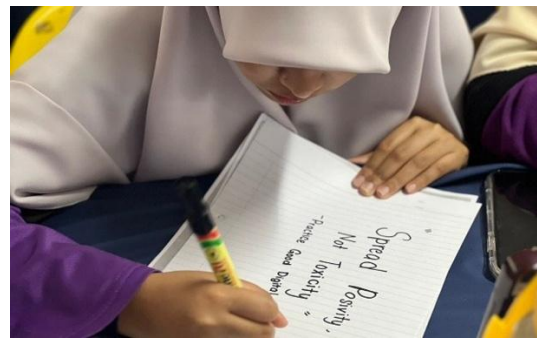 "Spread Posivity,
Not Toxicity"
~Practice Good Digital